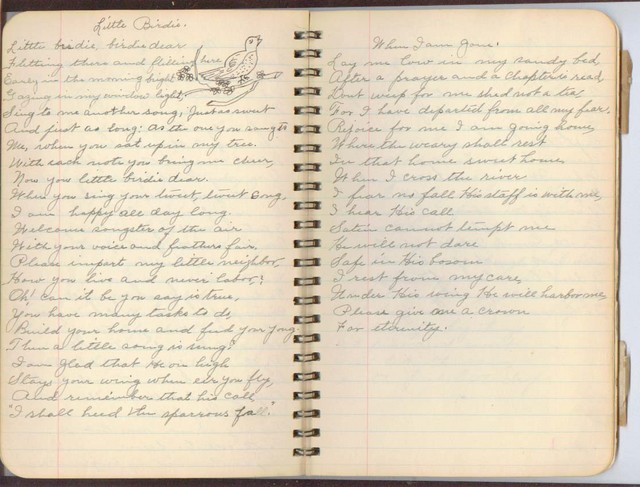 Little Birdie.
Little birdie, birdie dear
Flitting there and flitting here
Early in the morning bright
Gazing in my window light,
Sing to me another song, Just as sweet
And just as long: As the one you sang to
Me, when you sat up in my tree.
With each note you bring me cheer,
Now you little birdie dear.
When you sing your tweet, tweet song,
I am happy all day long.
Welcome songster of the air
With your voice and feathers fair,
Please impart my little neighbor,
How you live and never labor,!
Oh! can it be you say is true,
You have many tasks to do,
Build your home and find your yong.
Then a little song is sung?
I am glad that He on high
Stays your wing when eer you fly,
And remember that his call,
"I shall heed the sparrows fall."
When I am Gone.
Lay me low in my sandy bed,
After a prayer and a Chapter is read,
Dont weep for me shed not a tear
For I have departed from all my fear,
Rejoice for me I am going home,
Where the weary shall rest
In that home sweet home,
When I cross the river
I fear no fall His staff is with me,
I hear His call
Satin cannot tempt me
He will not dare
Safe in His bosom
I rest from my care,
Under His wing He will harbor me,
Please give me a crown
For eternity.